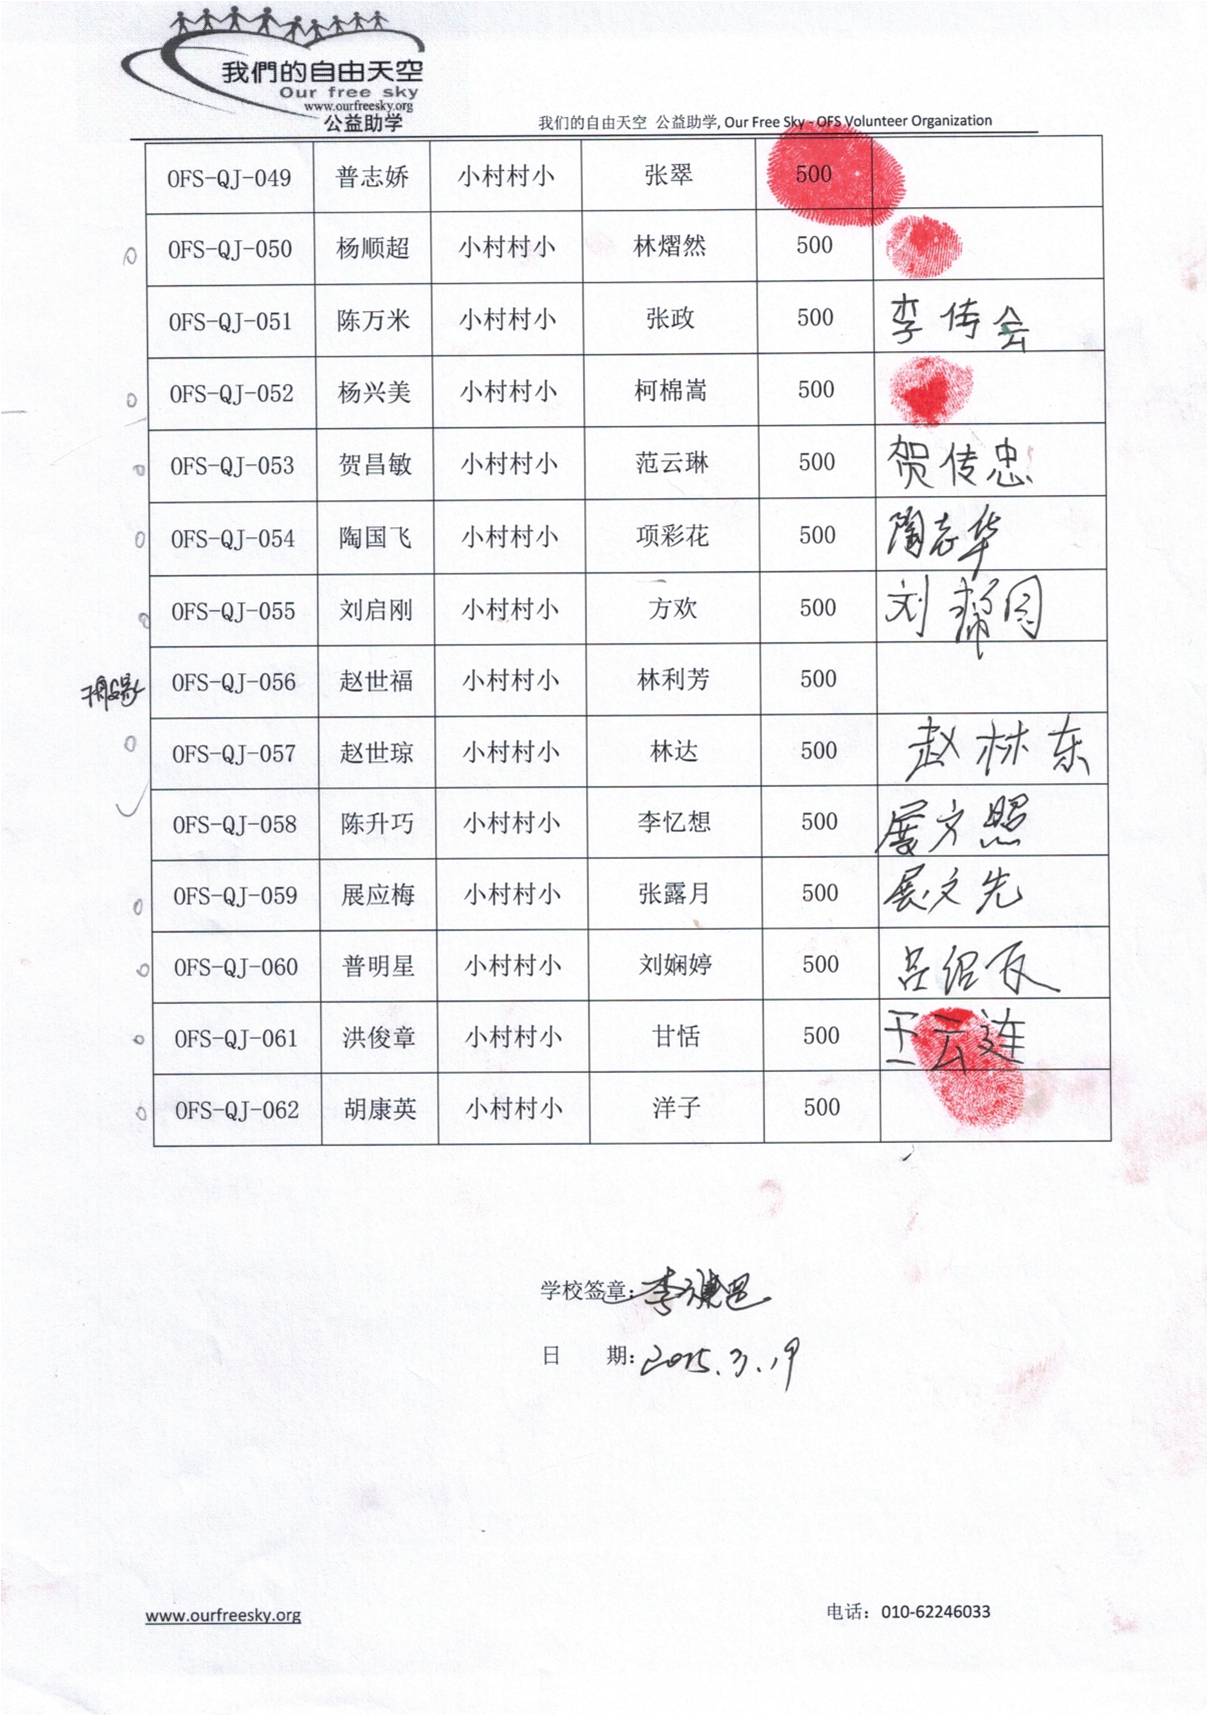 我們的自由天空
Our free sky
www.ourfreesky.org
公益助学
我们的自由天空 公益助学, Our Free Sky - OFS Volunteer Organization
OFS-QJ-049 普志娇 小村村小 张翠 500
OFS-QJ-050 杨顺超 小村村小 林熠然 500
OFS-QJ-051 陈万米 小村村小 张政 500 李传会
OFS-QJ-052 杨兴美 小村村小 柯棉嵩 500
OFS-QJ-053 贺昌敏 小村村小 范云琳 500 贺传忠
OFS-QJ-054 陶国飞 小村村小 项彩花 500 陶志华
OFS-QJ-055 刘启刚 小村村小 方欢 500 刘
OFS-QJ-056 赵世福 小村村小 林利芳 500
OFS-QJ-057 赵世琼 小村村小 林达 500 赵林东
OFS-QJ-058 陈升巧 小村村小 李忆想 500
OFS-QJ-059 展应梅 小村村小 张露月 500 展文先
OFS-QJ-060 普明星 小村村小 刘娴婷 500 吕绍
OFS-QJ-061 洪俊章 小村村小 甘恬 500 王云连
OFS-QJ-062 胡康英 小村村小 洋子 500
学校签章: 李
日 期: 2015.3.19
www.ourfreesky.org 电话: 010-62246033